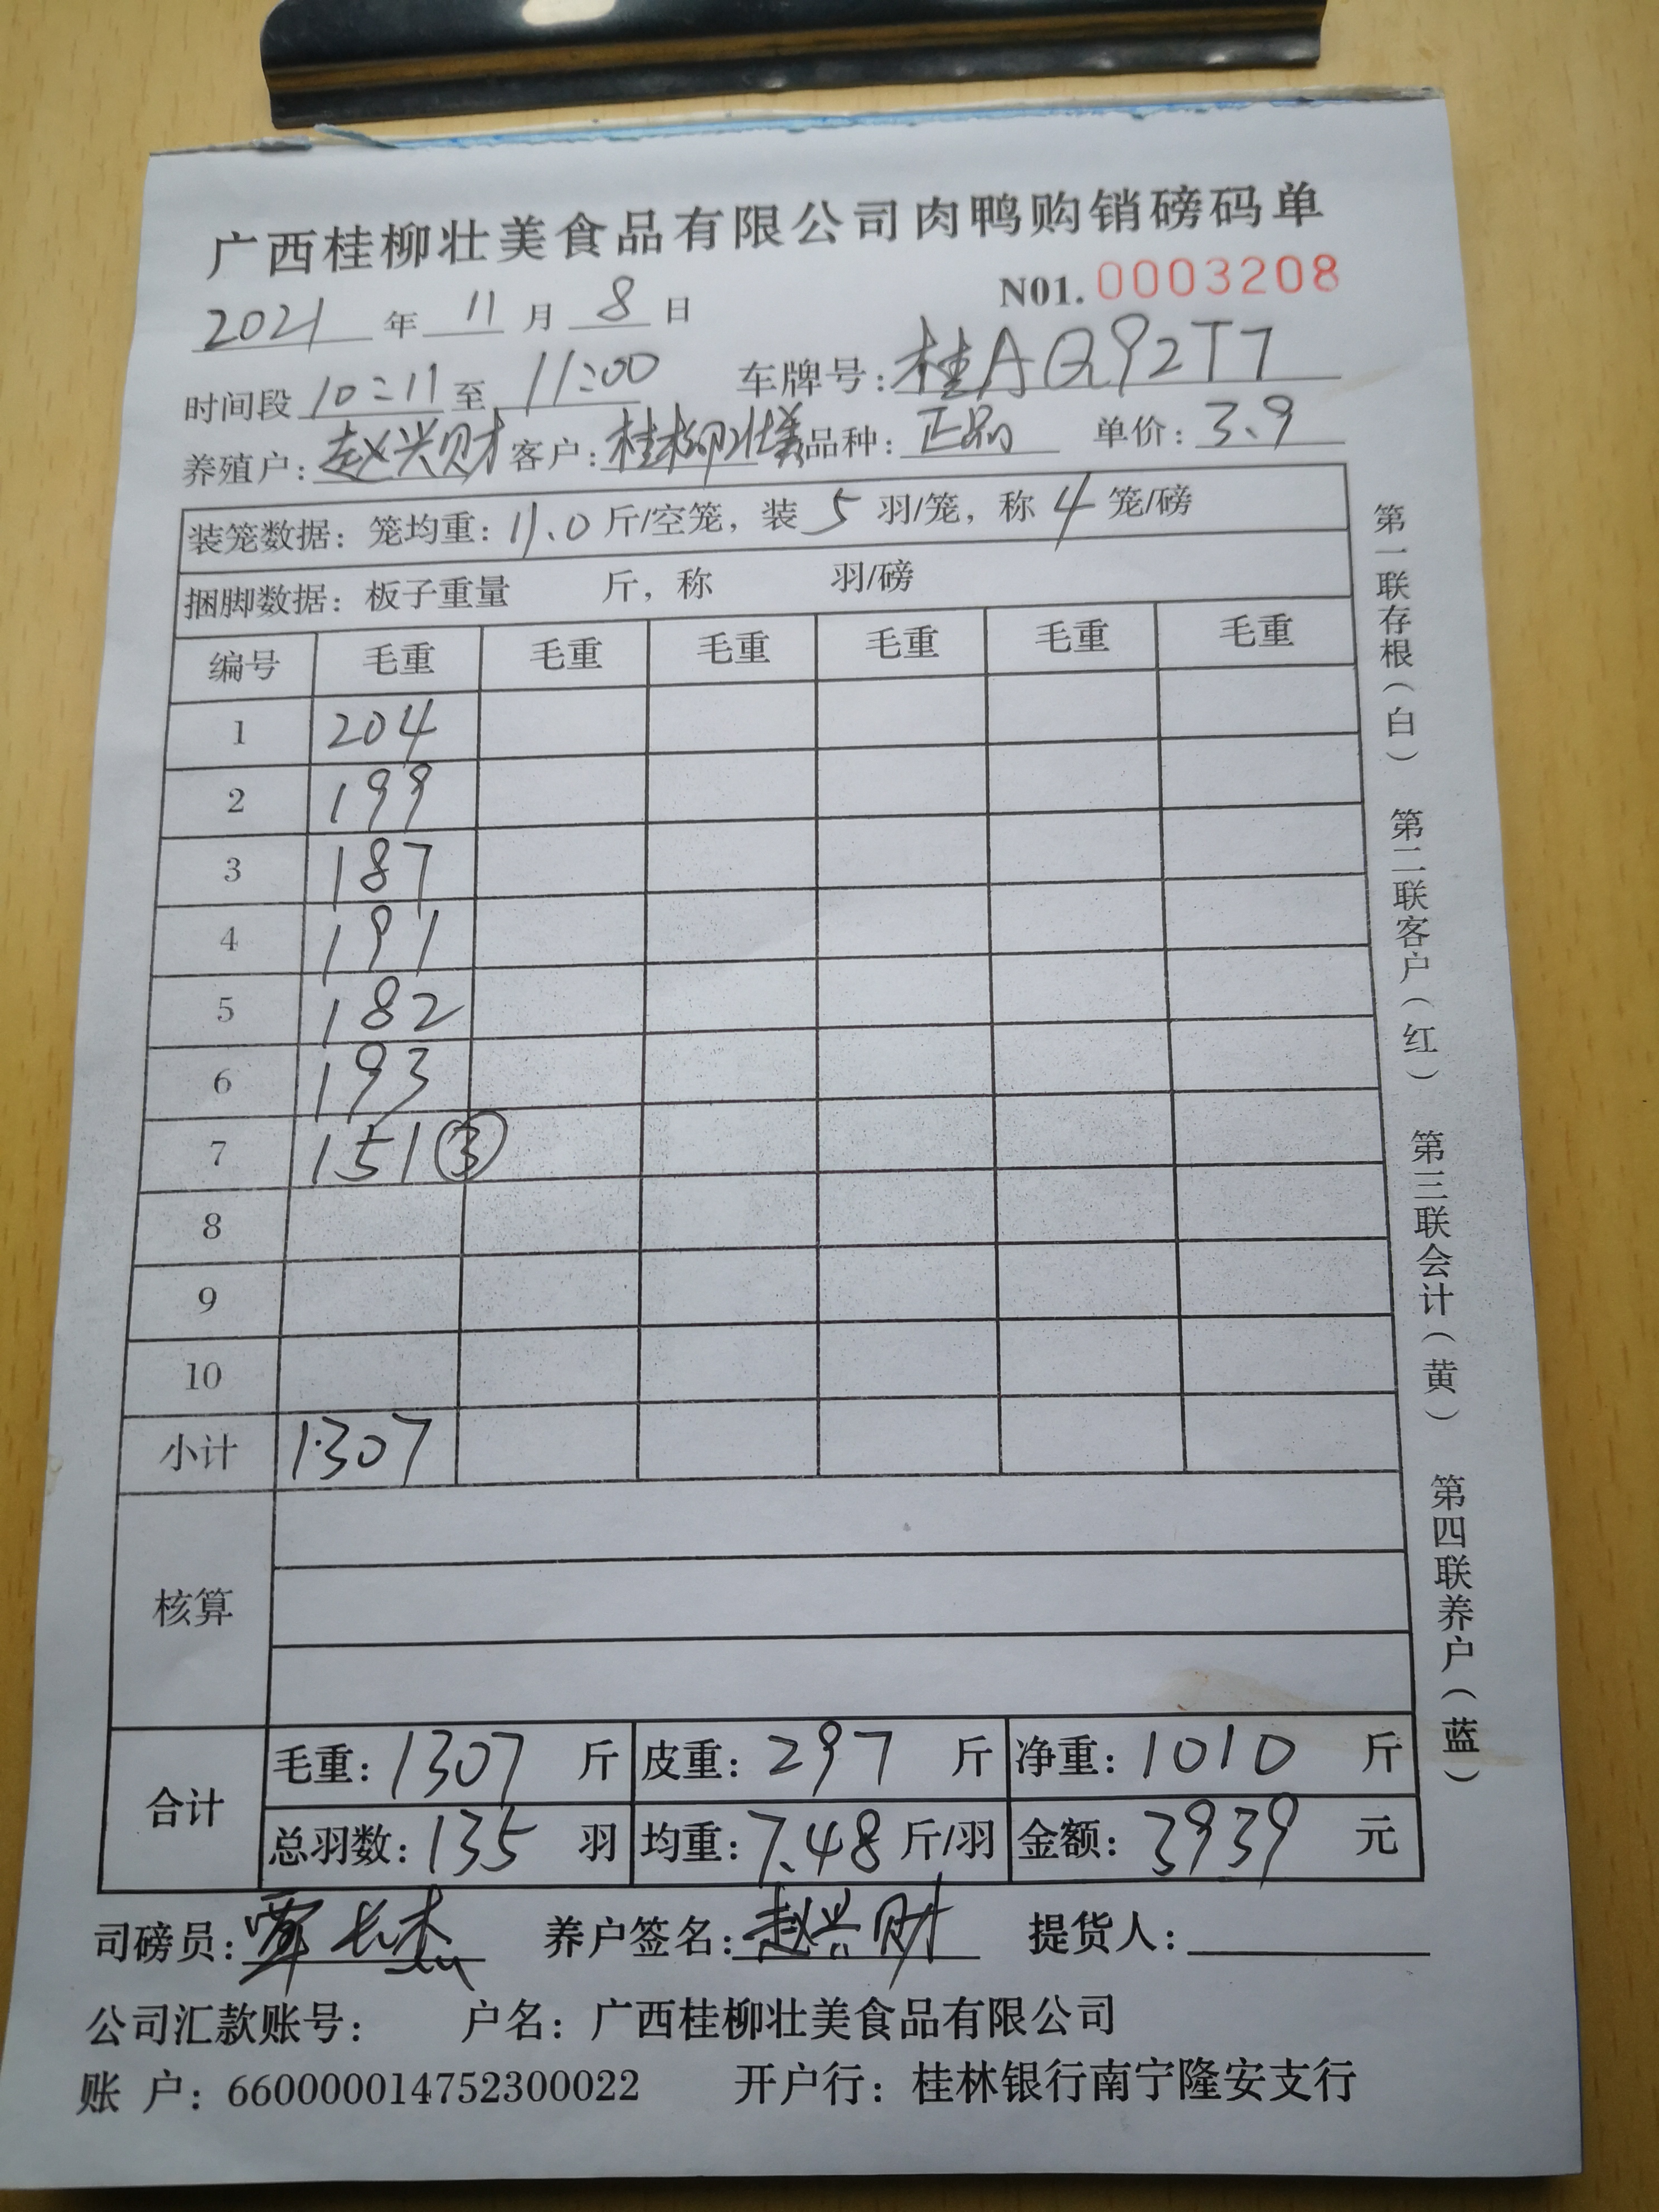 广西桂柳壮美食品有限公司肉鸭购销磅码单
N01.0003208
2021年11月8日
时间段10:11至11:00 车牌号:桂AQ92T7
养殖户:赵兴财 客户:桂柳壮美 品种:正品 单价:3.9
装笼数据:笼均重:11.0斤/空笼,装5羽/笼,称4笼/磅
捆脚数据:板子重量 斤,称 羽/磅
编号 毛重 毛重 毛重 毛重 毛重 毛重
1 204
2 199
3 187
4 191
5 182
6 193
7 151③
8
9
10
小计 1307
核算
合计 毛重:1307斤 皮重:297斤 净重:1010斤
总羽数:135羽 均重:7.48斤/羽 金额:3939元
司磅员:覃长杰 养户签名:赵兴财 提货人:
公司汇款账号: 户名:广西桂柳壮美食品有限公司
账户:660000014752300022 开户行:桂林银行南宁隆安支行
第一联存根(白) 第二联客户(红) 第三联会计(黄) 第四联养户(蓝)